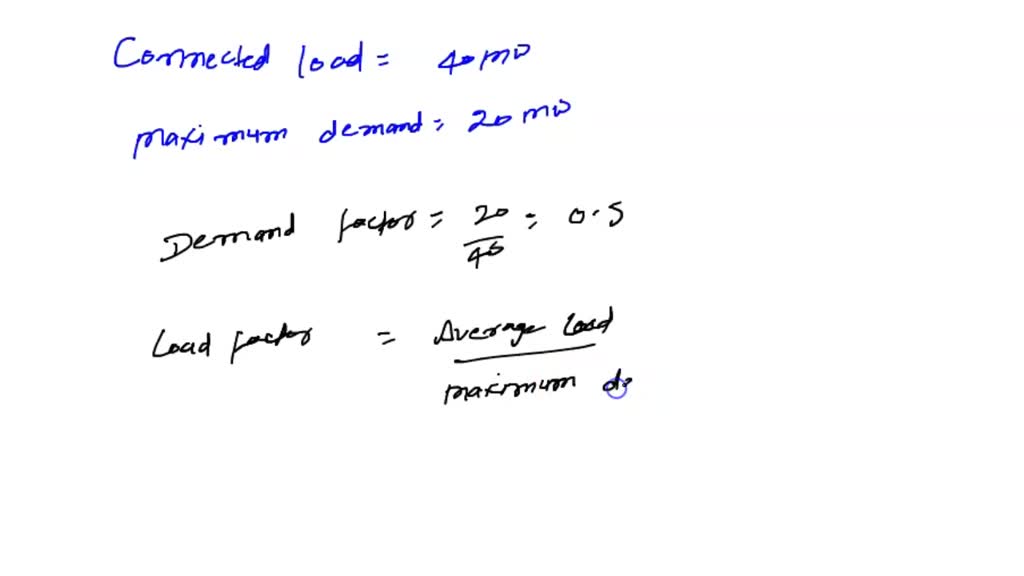 Connected load = 40 MW
maximum demand = 20 MW
Demand factor = 20/40 = 0.5
Load factor = Average Load / maximum de